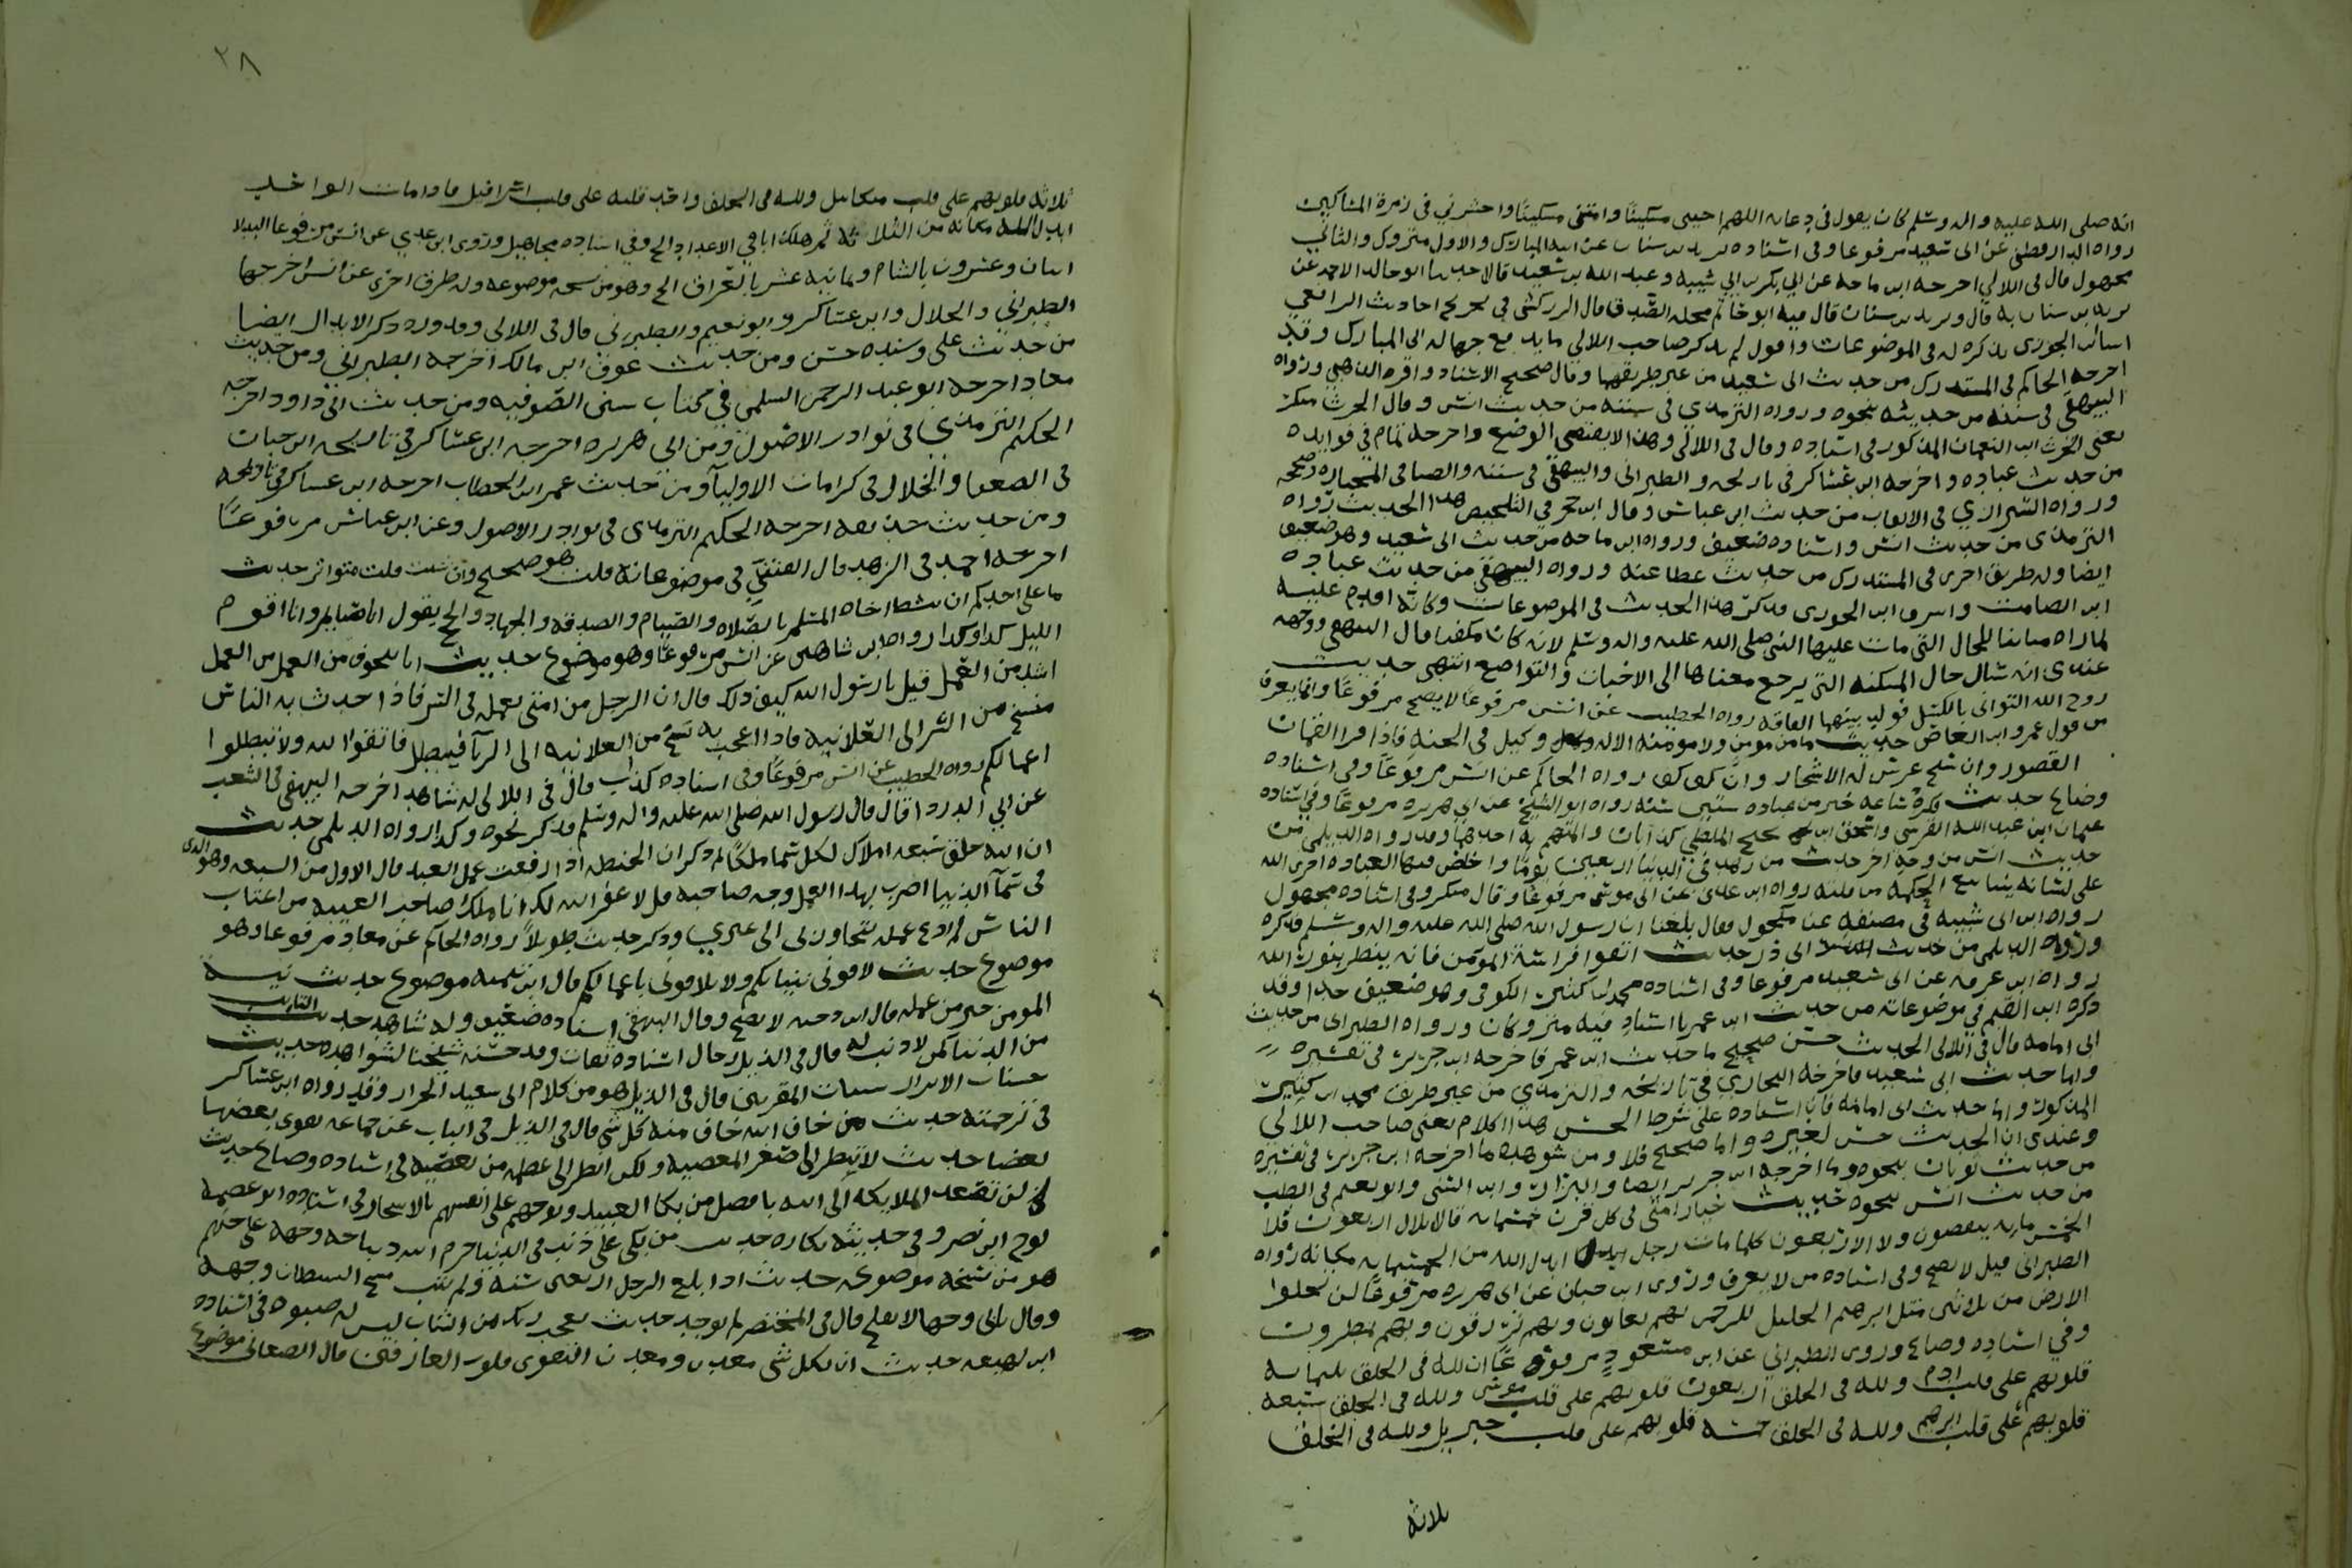 انه صلى الله عليه واله وسلم كان يقول في دعايه اللهم احيني مسكينا وامتني مسكينا واحشرني في زمرة المساكين
رواه الدارقطني عن ابي سعيد مرفوعا وفي اسناده يزيد بن سنان عن ابي المبارك والاول متروك والثاني
مجهول قال في اللالي اخرجه ابن ماجه عن ابي بكر بن ابي شيبه وعبد الله بن سعيد قالا حدثنا ابو خالد الاحمر عن
يزيد بن سنان به قال ويزيد بن سنان قال فيه ابو حاتم محله الصدق قال الزركشي في تخريج احاديث الرافعي
اسا ابن الجوزي بذكره له في الموضوعات واقول لم يذكر صاحب اللالي ما يدفع جهالة ابي المبارك وقد
اخرجه الحاكم في المستدرك من حديث ابي سعيد من غير طريقهما وقال صحيح الاسناد واقره الذهبي ورواه
البيهقي في سننه من حديثه بنحوه ورواه الترمذي في سننه من حديث انس وقال الحرث منكر
يعني الحرث ابن النعمان المذكور في اسناده وقال في اللالي وهذا لا يقتضي الوضع واخرجه تمام في فوايده
من حديث عباده واخرجه ابن عساكر في تاريخه والطبراني والبيهقي في سننه والضيا في المختاره وصححه
ورواه الشيرازي في الالقاب من حديث ابن عباس وقال ابن حجر في التلخيص هذا الحديث رواه
الترمذي من حديث انس واسناده ضعيف ورواه ابن ماجه من حديث ابي سعيد وهو ضعيف
ايضا وله طريق اخرى في المستدرك من حديث عطا عنه ورواه البيهقي من حديث عباده
ابن الصامت واسرف ابن الجوزي فذكر هذا الحديث في الموضوعات وكانه اقدم عليه
لما راه مباينا للحال التي مات عليها النبي صلى الله عليه واله وسلم لانه كان مكفيا قال البيهقي ووجهه
عندي انه سال حال المسكنه التي يرجع معناها الى الاخبات والتواضع انتهى حديث
زوج الله التواني بالكسل فولد بينهما الفاقه رواه الخطيب عن انس مرفوعا لا يصح مرفوعا وانما يعرف
من قول عمرو ابن العاص حديث ما من مومن ولا مومنه الا له وكيل في الجنه فاذا قرا القران
القصور وان سبح غرس له الاشجار وان كف كف رواه الحاكم عن انس مرفوعا وفي اسناده
وضاع حديث فكرة ساعه خير من عباده ستين سنه رواه ابو الشيخ عن ابي هريره مرفوعا وفي اسناده
عثمان ابن عبد الله القرشي واسحق ابن نجيح الملطي كذابان والمتهم به احدهما وقد رواه الديلمي من
حديث انس من وجه اخر حديث من زهد في الدنيا اربعين يوما واخلص فيها العباده اجرى الله
على لسانه ينابيع الحكمه من قلبه رواه ابن عدي عن ابي موسى مرفوعا وقال منكر وفي اسناده مجهول
رواه ابن ابي شيبه في مصنفه عن مكحول فقال بلغنا ان رسول الله صلى الله عليه واله وسلم فذكره
ورواه الديلمي من حديث ابي ذر حديث اتقوا فراسة المومن فانه ينظر بنور الله
رواه ابن عرفه عن ابي سعيد مرفوعا وفي اسناده محمد بن كثير الكوفي وهو ضعيف جدا وقد
ذكره ابن القيم في موضوعاته من حديث ابن عمر باسناد فيه متروكان ورواه الطبراني من حديث
ابي امامه قال في اللالي الحديث حسن صحيح ما حديث ابن عمر فاخرجه ابن جرير في تفسيره
واما حديث ابي سعيد فاخرجه البخاري في تاريخه والترمذي من غير طريق محمد ابن كثير
المذكور واما حديث ابي امامه فان اسناده على شرط الحسن هذا الكلام يعني صاحب اللالي
وعندي ان الحديث حسن لغيره واما صحيح فلا ومن شواهده ما اخرجه ابن جرير في تفسيره
من حديث ثوبان بنحوه وما اخرجه ابن جرير ايضا والبزار وابن السني وابو نعيم في الطب
من حديث انس بنحوه حديث خيار امتي في كل قرن خمسمايه قالابدال اربعون فلا
الخمسمايه ينقصون ولا الاربعون كلما مات رجل ابدل الله من الخمسمايه مكانه رواه
الطبراني قيل لا يصح وفي اسناده من لا يعرف وروى ابن حبان عن ابي هريره مرفوعا لن تخلوا
الارض من ثلاثين مثل ابرهيم الخليل للرحمن بهم يعانون وبهم يرزقون وبهم يمطرون
وفي اسناده وضاع وروى الطبراني عن ابن مسعود مرفوعا ان لله في الخلق ثلثمايه
قلوبهم على قلب ادم ولله في الخلق اربعون قلوبهم على قلب موسى ولله في الخلق سبعه
قلوبهم على قلب ابرهيم ولله في الخلق خمسه قلوبهم على قلب جبريل ولله في الخلق
ثلاثه
٢٨
ثلاثه قلوبهم على قلب ميكاييل ولله في الخلق واحد قلبه على قلب اسرافيل فاذا مات الواحد
ابدل الله مكانه من الثلاثه ثم هلك اباقي الاعداد الح وفي اسناده مجاهيل وروى ابن عدي عن انس مرفوعا البدلا
اثنان وعشرون بالشام وثمانيه عشر بالعراق الح وهو من نسخه موضوعه وله طرق اخرى عن انس اخرجها
الطبراني والخلال وابن عساكر وابو نعيم والطبراني قال في اللالي وقد ورد ذكر الابدال ايضا
من حديث علي وسنده حسن ومن حديث عوف ابن مالك اخرجه الطبراني ومن حديث
معاذ اخرجه ابو عبد الرحمن السلمي في كتاب سنن الصوفيه ومن حديث ابي داود اخرجه
الحكيم الترمذي في نوادر الاصول ومن ابي هريره اخرجه ابن عساكر في تاريخه ابن حبان
في الضعفا والخلال في كرامات الاوليا ومن حديث عمر ابن الخطاب اخرجه ابن عساكر في تاريخه
ومن حديث حذيفه اخرجه الحكيم الترمذي في نوادر الاصول وعن ابن عباس مرفوعا
اخرجه احمد في الزهد قال الفتني في موضوعاته قلت هو صحيح وان شئت قلت متواتر حديث
ما على احدكم ان ينشط اخاه المسلم بالصلاه والصيام والصدقه والجهاد والحج يقول انا صايم وانا اقوم
الليل كذا وكذا رواه ابن شاهين عن انس مرفوعا وهو موضوع حديث ان للخوف من العمل من العمل
اشد من العمل قيل يا رسول الله كيف ذلك قال ان الرجل من امتي يعمل في السر فاذا احدث به الناس
نسخ من السر الى العلانيه فاذا اعجب به نسخ من العلانيه الى الريا فيبطل فاتقوا الله ولا تبطلوا
اعمالكم رواه الخطيب عن انس مرفوعا وفي اسناده كذاب قال في اللالي له شاهد اخرجه البيهقي في الشعب
عن ابي الدردا قال قال رسول الله صلى الله عليه واله وسلم فذكر نحوه وكذا رواه الديلمي حديث
ان الله خلق سبعه املاك لكل سما ملكا ثم ذكر ان الحفظه اذا رفعت عمل العبد قال الاول من السبعه وهو الذي
في سما الدنيا اضرب بهذا العمل وجه صاحبه قل لا غفر الله لك انا ملك صاحب الغيبه من اغتاب
الناس لم ادع عمله يتجاوزني الى غيري وذكر حديث طويلا رواه الحاكم عن معاذ مرفوعا وهو
موضوع حديث لاقوني بنياتكم ولا تلاقوني باعمالكم قال ابن تيميه موضوع حديث نية
المومن خير من عمله قال ابن دحيه لا يصح وقال البيهقي اسناده ضعيف وله شاهد حديث التايب
من الذنب كمن لا ذنب له قال في الذيل رجال اسناده ثقات وقد حسنه شيخنا لشواهده حديث
حسنات الابرار سيئات المقربين قال في الذيل هو من كلام ابي سعيد الخراز وقد رواه ابن عساكر
في ترجمته حديث من خاف الله خاف منه كل شي قال في الذيل في الباب عن جماعه يقوي بعضها
بعضا حديث لا تنظر الى صغر المعصيه ولكن انظر الى عظمه من تعصيه في اسناده وضاع حديث
لن تصعد الملايكه الى الله بافضل من بكا العبيد ونوحهم على انفسهم بالاسحار في اسناده ابو عصمه
نوح ابن نصر وفي حديثه نكاره حديث من بكى على ذنب في الدنيا حرم الله ديباجه وجهه على جهنم
هو من نسخه موضوعه حديث اذا بلغ الرجل اربعين سنه ولم يتب مسح الشيطان وجهه
وقال بابي وجها لا يفلح قال في المختصر لم يوجد حديث يعجب ربك من الشاب ليس له صبوه في اسناده
ابن لهيعه حديث ان لكل شي معدن ومعدن التقوى قلوب العارفين قال الصغاني موضوع